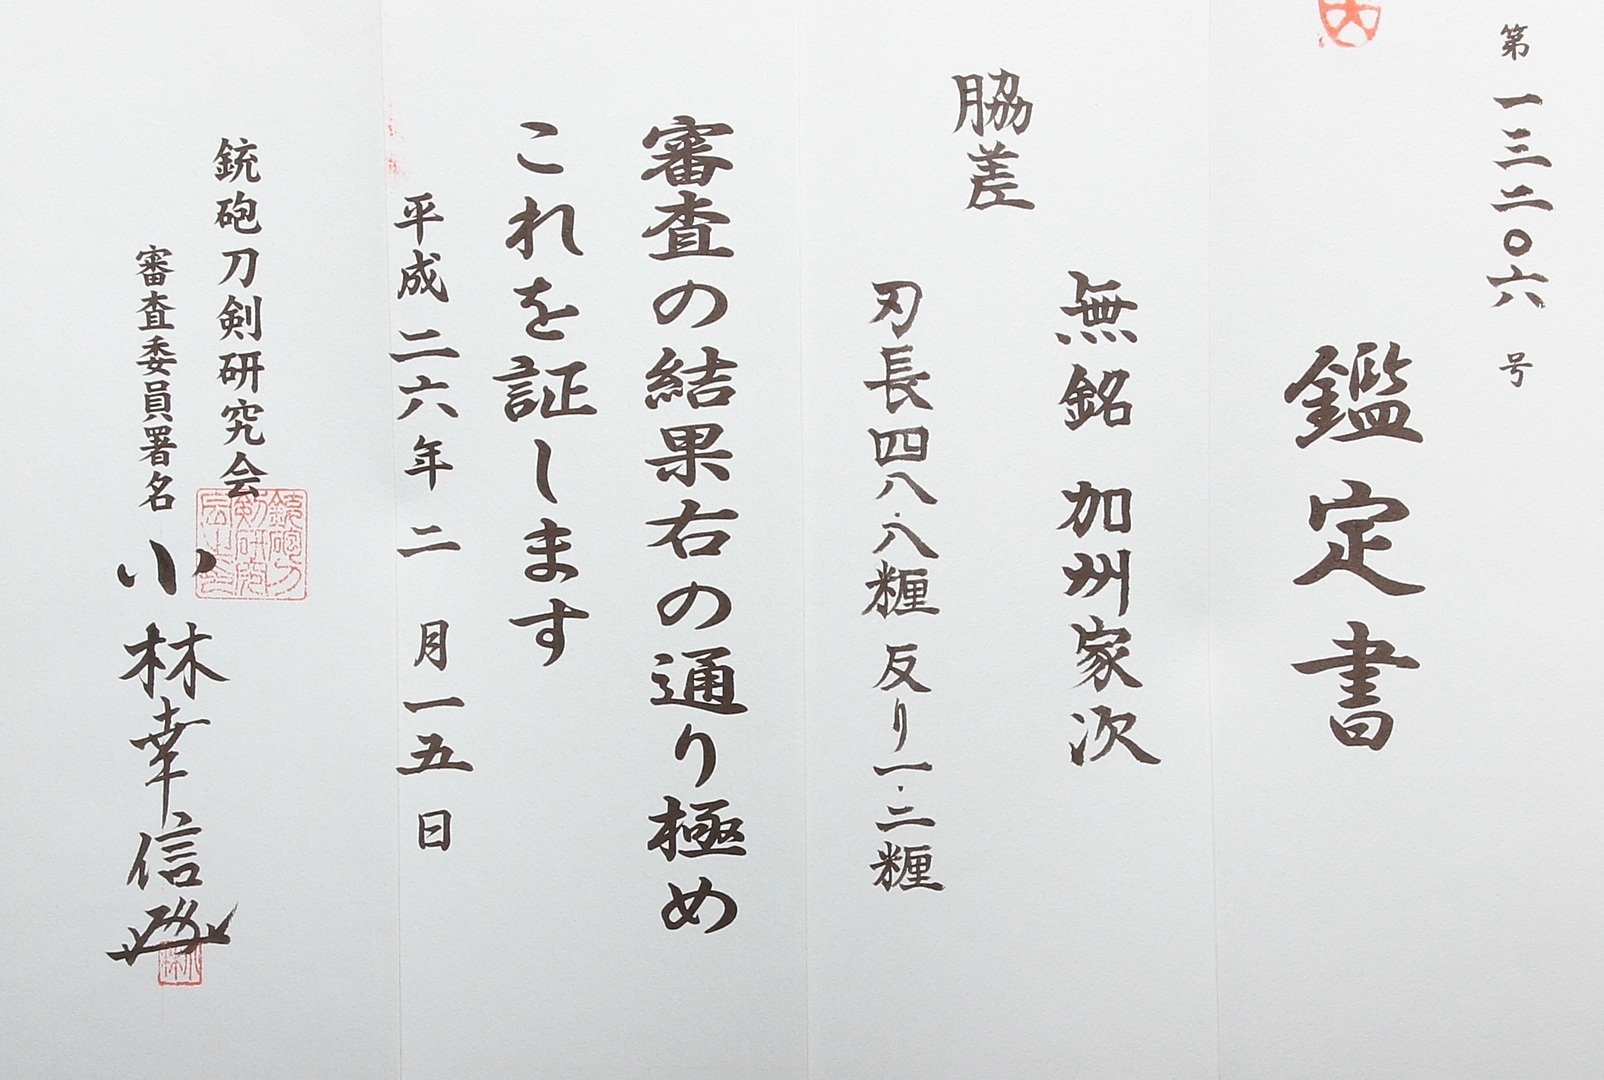 第一三二〇六号
鑑定書
無銘 加州家次
脇差
刃長四八・八糎 反り一・二糎
審査の結果右の通り極め
これを証します
平成二六年二月一五日
銃砲刀剣研究会
審査委員署名 小林幸信